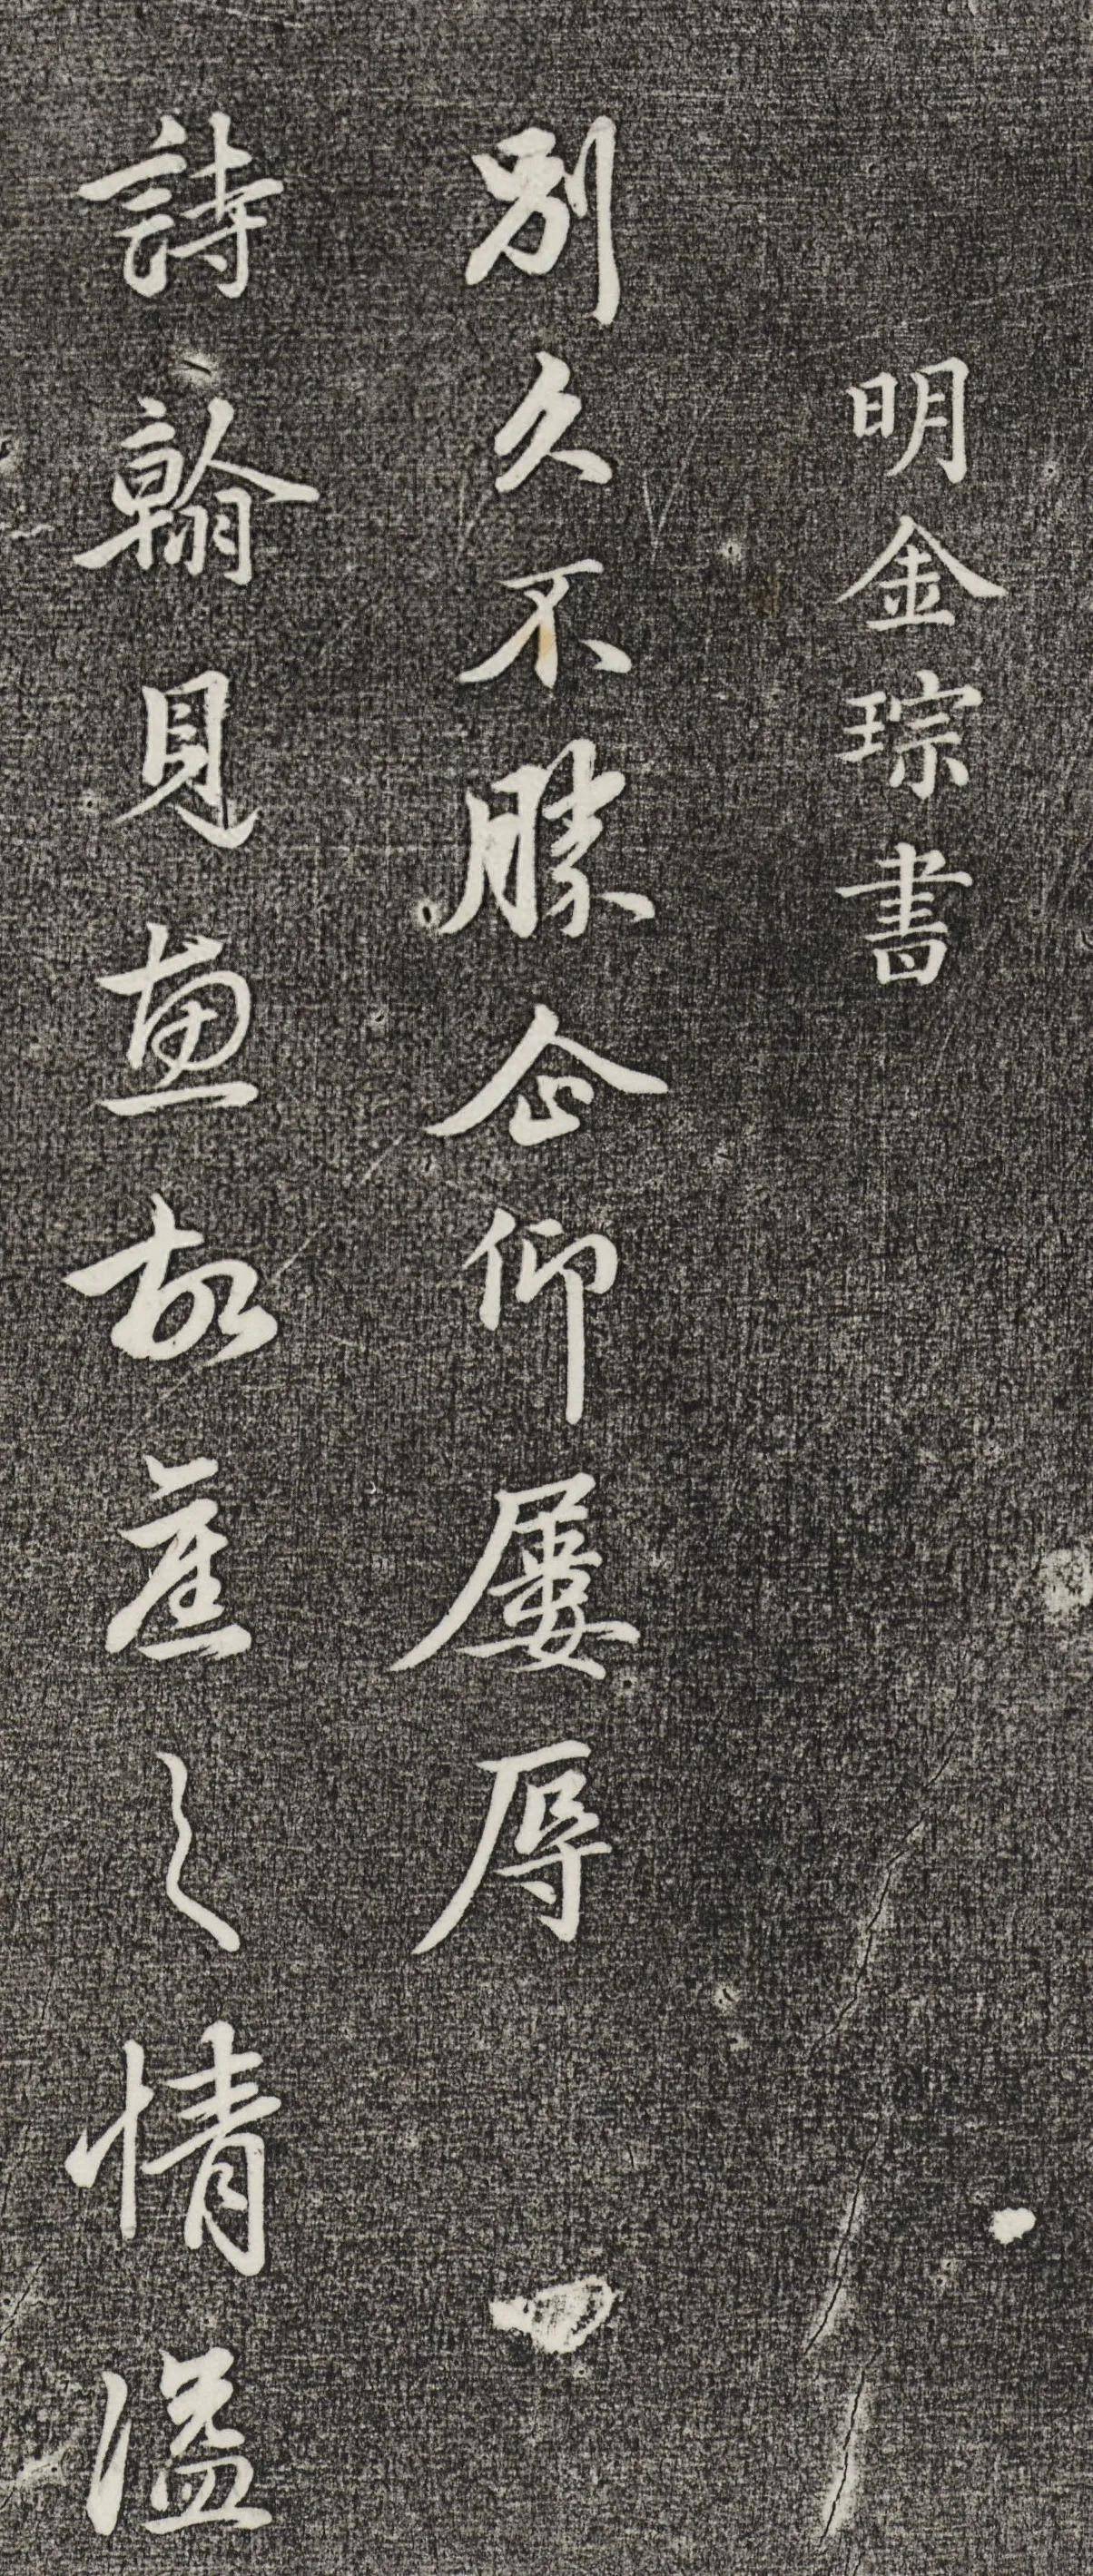 明金琮書
別久不勝企仰屢辱
詩翰見惠故舊之情溢